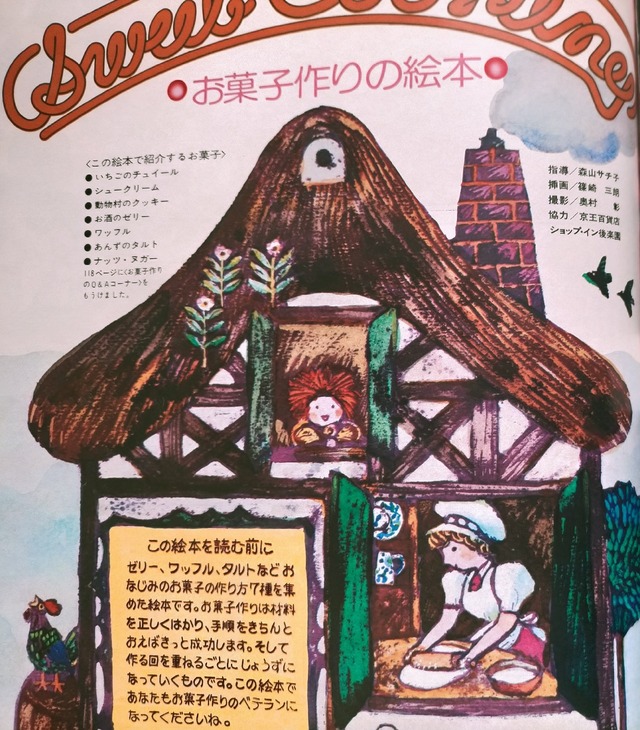 Sweet Cooking
お菓子作りの絵本
〈この絵本で紹介するお菓子〉
●いちごのチュイール
●シュークリーム
●動物村のクッキー
●お酒のゼリー
●ワッフル
●あんずのタルト
●ナッツ・ヌガー
118ページに〈お菓子作り
のQ&Aコーナー〉を
もうけました。
指導／森山サチ子
挿画／篠崎 三朗
撮影／奥村 彰
協力／京王百貨店
ショップ・イン後楽園
この絵本を読む前に
ゼリー、ワッフル、タルトなどお
なじみのお菓子の作り方7種を集
めた絵本です。お菓子作りは材料
を正しくはかり、手順をきちんと
おえばきっと成功します。そして
作る回を重ねるごとにじょうずに
なっていくものです。この絵本で
あなたもお菓子作りのベテランに
なってくださいね。